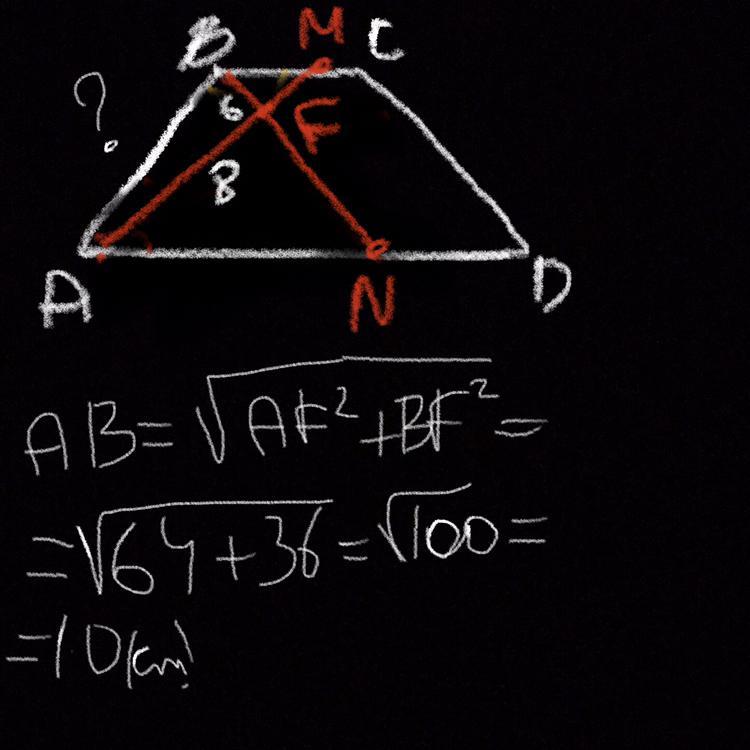 B M C
? 6 F
8
A N D
AB=√AF²+BF²=
=√64+36=√100=
=10(cm)